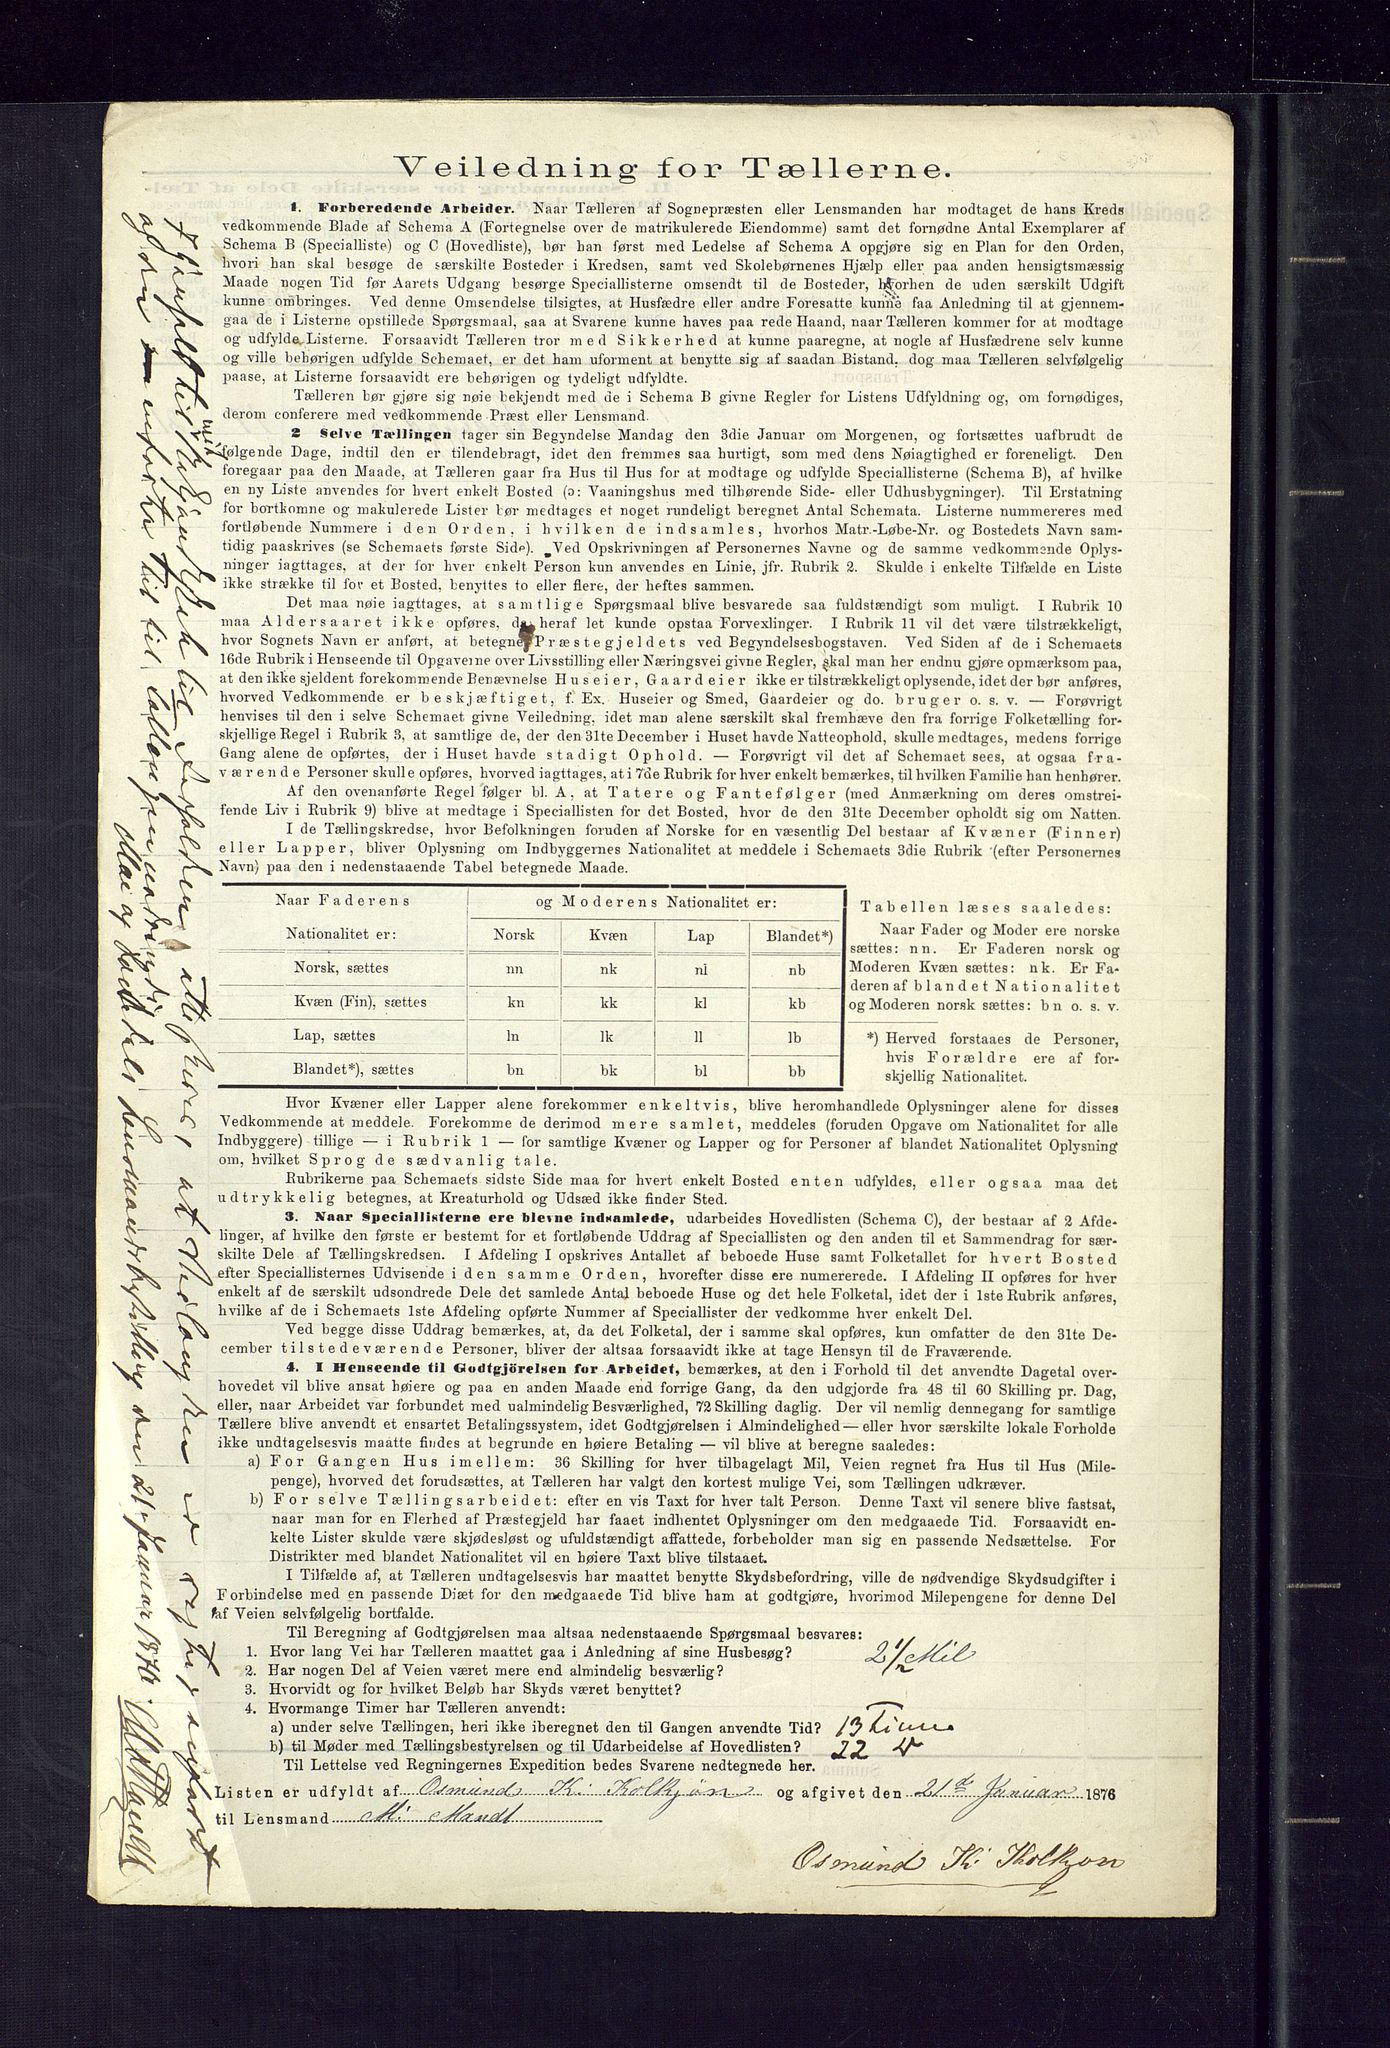 Veiledning for Tællerne.
1. Forberedende Arbeider. Naar Tælleren af Sognepræsten eller Lensmanden har modtaget de hans Kreds
vedkommende Blade af Schema A (Fortegnelse over de matrikulerede Eiendomme) samt det fornødne Antal Exemplarer af
Schema B (Specialliste) og C (Hovedliste), bør han først med Ledelse af Schema A opgjøre sig en Plan for den Orden,
hvori han skal besøge de særskilte Bosteder i Kredsen, samt ved Skolebørnenes Hjælp eller paa anden hensigtsmæssig
Maade nogen Tid før Aarets Udgang besørge Speciallisterne omsendt til de Bosteder, hvorhen de uden særskilt Udgift
kunne ombringes. Ved denne Omsendelse tilsigtes, at Husfædre eller andre Foresatte kunne faa Anledning til at gjennem-
gaa de i Listerne opstillede Spørgsmaal, saa at Svarene kunne haves paa rede Haand, naar Tælleren kommer for at modtage
og udfylde Listerne. Forsaavidt Tælleren tror med Sikkerhed at kunne paaregne, at nogle af Husfædrene selv kunne
og ville behørigen udfylde Schemaet, er det ham uforment at benytte sig af saadan Bistand, dog maa Tælleren selvfølgelig
paase, at Listerne forsaavidt ere behørigen og tydeligt udfyldte.
Tælleren bør gjøre sig nøie bekjendt med de i Schema B givne Regler for Listens Udfyldning og, om fornødiges,
derom conferere med vedkommende Præst eller Lensmand.
2 Selve Tællingen tager sin Begyndelse Mandag den 3die Januar om Morgenen, og fortsættes uafbrudt de
følgende Dage, indtil den er tilendebragt, idet den fremmes saa hurtigt, som med dens Nøiagtighed er foreneligt. Den
foregaar paa den Maade, at Tælleren gaar fra Hus til Hus for at modtage og udfylde Speciallisterne (Schema B), af hvilke
en ny Liste anvendes for hvert enkelt Bosted (ɔ: Vaaningshus med tilhørende Side- eller Udhusbygninger). Til Erstatning
for bortkomne og makulerede Lister bør medtages et noget rundeligt beregnet Antal Schemata. Listerne nummereres med
fortløbende Nummere i den Orden, i hvilken de indsamles, hvorhos Matr.-Løbe-Nr. og Bostedets Navn sam-
tidig paaskrives (se Schemaets første Side). Ved Opskrivningen af Personernes Navne og de samme vedkommende Oplys-
ninger iagttages, at der for hver enkelt Person kun anvendes en Linie, jfr. Rubrik 2. Skulde i enkelte Tilfælde en Liste
ikke strække til for et Bosted, benyttes to eller flere, der heftes sammen.
Det maa nøie iagttages, at samtlige Spørgsmaal blive besvarede saa fuldstændigt som muligt. I Rubrik 10
maa Aldersaaret ikke opføres, da heraf let kunde opstaa Forvexlinger. I Rubrik 11 vil det være tilstrækkeligt,
hvor Sognets Navn er anført, at betegne Præstegjeldets ved Begyndelsesbogstaven. Ved Siden af de i Schemaets
16de Rubrik i Henseende til Opgaverne over Livsstilling eller Næringsvei givne Regler, skal man her endnu gjøre opmærksom paa,
at den ikke sjeldent forekommende Benævnelse Huseier, Gaardeier ikke er tilstrækkeligt oplysende, idet der bør anføres,
hvorved Vedkommende er beskjæftiget, f. Ex. Huseier og Smed, Gaardeier og do. bruger o. s. v. — Forøvrigt
henvises til den i selve Schemaet givne Veiledning, idet man alene særskilt skal fremhæve den fra forrige Folketælling for-
skjellige Regel i Rubrik 3, at samtlige de, der den 31te December i Huset havde Natteophold, skulle medtages, medens forrige
Gang alene de opførtes, der i Huset havde stadigt Ophold. — Forøvrigt vil det af Schemaet sees, at ogsaa fra-
værende Personer skulle opføres, hvorved iagttages, at i 7de Rubrik for hver enkelt bemærkes, til hvilken Familie han henhører.
Af den ovenanførte Regel følger bl. A, at Tatere og Fantefølger (med Anmærkning om deres omstrei-
fende Liv i Rubrik 9) blive at medtage i Speciallisten for det Bosted, hvor de den 31te December opholdt sig om Natten.
I de Tællingskredse, hvor Befolkningen foruden af Norske for en væsentlig Del bestaar af Kvæner (Finner)
eller Lapper, bliver Oplysning om Indbyggernes Nationalitet at meddele i Schemaets 3die Rubrik (efter Personernes
Navn) paa den i nedenstaaende Tabel betegnede Maade.
Naar Faderens og Moderens Nationalitet er:
Nationalitet er: Norsk Kvæn Lap Blandet*)
Norsk, sættes nn nk nl nb
Kvæn (Fin), sættes kn kk kl kb
Lap, sættes ln lk ll lb
Blandet*), sættes bn bk bl bb
Tabellen læses saaledes:
Naar Fader og Moder ere norske
sættes: nn. Er Faderen norsk og
Moderen Kvæn sættes: nk. Er Fa-
deren af blandet Nationalitet
og Moderen norsk sættes: bn o. s. v.
*) Herved forstaaes de Personer,
hvis Forældre ere af for-
skjellig Nationalitet.
Hvor Kvæner eller Lapper alene forekommer enkeltvis, blive heromhandlede Oplysninger alene for disses
Vedkommende at meddele. Forekomme de derimod mere samlet, meddeles (foruden Opgave om Nationalitet for alle
Indbyggere) tillige — i Rubrik 1 — for samtlige Kvæner og Lapper og for Personer af blandet Nationalitet Oplysning
om, hvilket Sprog de sædvanlig tale.
Rubrikerne paa Schemaets sidste Side maa for hvert enkelt Bosted enten udfyldes, eller ogsaa maa det
udtrykkelig betegnes, at Kreaturhold og Udsæd ikke finder Sted.
3. Naar Speciallisterne ere blevne indsamlede, udarbeides Hovedlisten (Schema C), der bestaar af 2 Afde-
linger, af hvilke den første er bestemt for et fortløbende Uddrag af Speciallisten og den anden til et Sammendrag for sær-
skilte Dele af Tællingskredsen. I Afdeling I opskrives Antallet af beboede Huse samt Folketallet for hvert Bosted
efter Speciallisternes Udvisende i den samme Orden, hvorefter disse ere numererede. I Afdeling II opføres for hver
enkelt af de særskilt udsondrede Dele det samlede Antal beboede Huse og det hele Folketal, idet der i 1ste Rubrik anføres,
hvilke af de i Schemaets 1ste Afdeling opførte Nummer af Speciallister der vedkomme hver enkelt Del.
Ved begge disse Uddrag bemærkes, at, da det Folketal, der i samme skal opføres, kun omfatter de den 31te De-
cember tilstedeværende Personer, bliver der altsaa forsaavidt ikke at tage Hensyn til de Fraværende.
4. I Henseende til Godtgjörelsen for Arbeidet, bemærkes, at den i Forhold til det anvendte Dagetal over-
hovedet vil blive ansat høiere og paa en anden Maade end forrige Gang, da den udgjorde fra 48 til 60 Skilling pr. Dag,
eller, naar Arbeidet var forbundet med ualmindelig Besværlighed, 72 Skilling daglig. Der vil nemlig dennegang for samtlige
Tællere blive anvendt et ensartet Betalingssystem, idet Godtgjørelsen i Almindelighed — eller hvor særskilte lokale Forholde
ikke undtagelsesvis maatte findes at begrunde en høiere Betaling — vil blive at beregne saaledes:
a) For Gangen Hus imellem: 36 Skilling for hver tilbagelagt Mil, Veien regnet fra Hus til Hus (Mile-
penge), hvorved det forudsættes, at Tælleren har valgt den kortest mulige Vei, som Tællingen udkræver.
b) For selve Tællingsarbeidet: efter en vis Taxt for hver talt Person. Denne Taxt vil senere blive fastsat,
naar man for en Flerhed af Præstegjeld har faaet indhentet Oplysninger om den medgaaede Tid. Forsaavidt en-
kelte Lister skulde være skjødesløst og ufuldstændigt affattede, forbeholder man sig en passende Nedsættelse. For
Distrikter med blandet Nationalitet vil en høiere Taxt blive tilstaaet.
I Tilfælde af, at Tælleren undtagelsesvis har maattet benytte Skydsbefordring, ville de nødvendige Skydsudgifter i
Forbindelse med en passende Diæt for den medgaaede Tid blive ham at godtgjøre, hvorimod Milepengene for denne Del
af Veien selvfølgelig bortfalde.
Til Beregning af Godtgjørelsen maa altsaa nedenstaaende Spørgsmaal besvares:
1. Hvor lang Vei har Tælleren maattet gaa i Anledning af sine Husbesøg? 2 1/2 Mil
2. Har nogen Del af Veien været mere end almindelig besværlig?
3. Hvorvidt og for hvilket Beløb har Skyds været benyttet?
4. Hvormange Timer har Tælleren anvendt:
a) under selve Tællingen, heri ikke iberegnet den til Gangen anvendte Tid? 13 Timer
b) til Møder med Tællingsbestyrelsen og til Udarbeidelse af Hovedlisten? 22
Til Lettelse ved Regningernes Expedition bedes Svarene nedtegnede her.
Listen er udfyldt af Osmund K: Kolkjøn og afgivet den 21de Januar 1876
til Lensmand M: Mandt
Osmund K: Kolkjøn